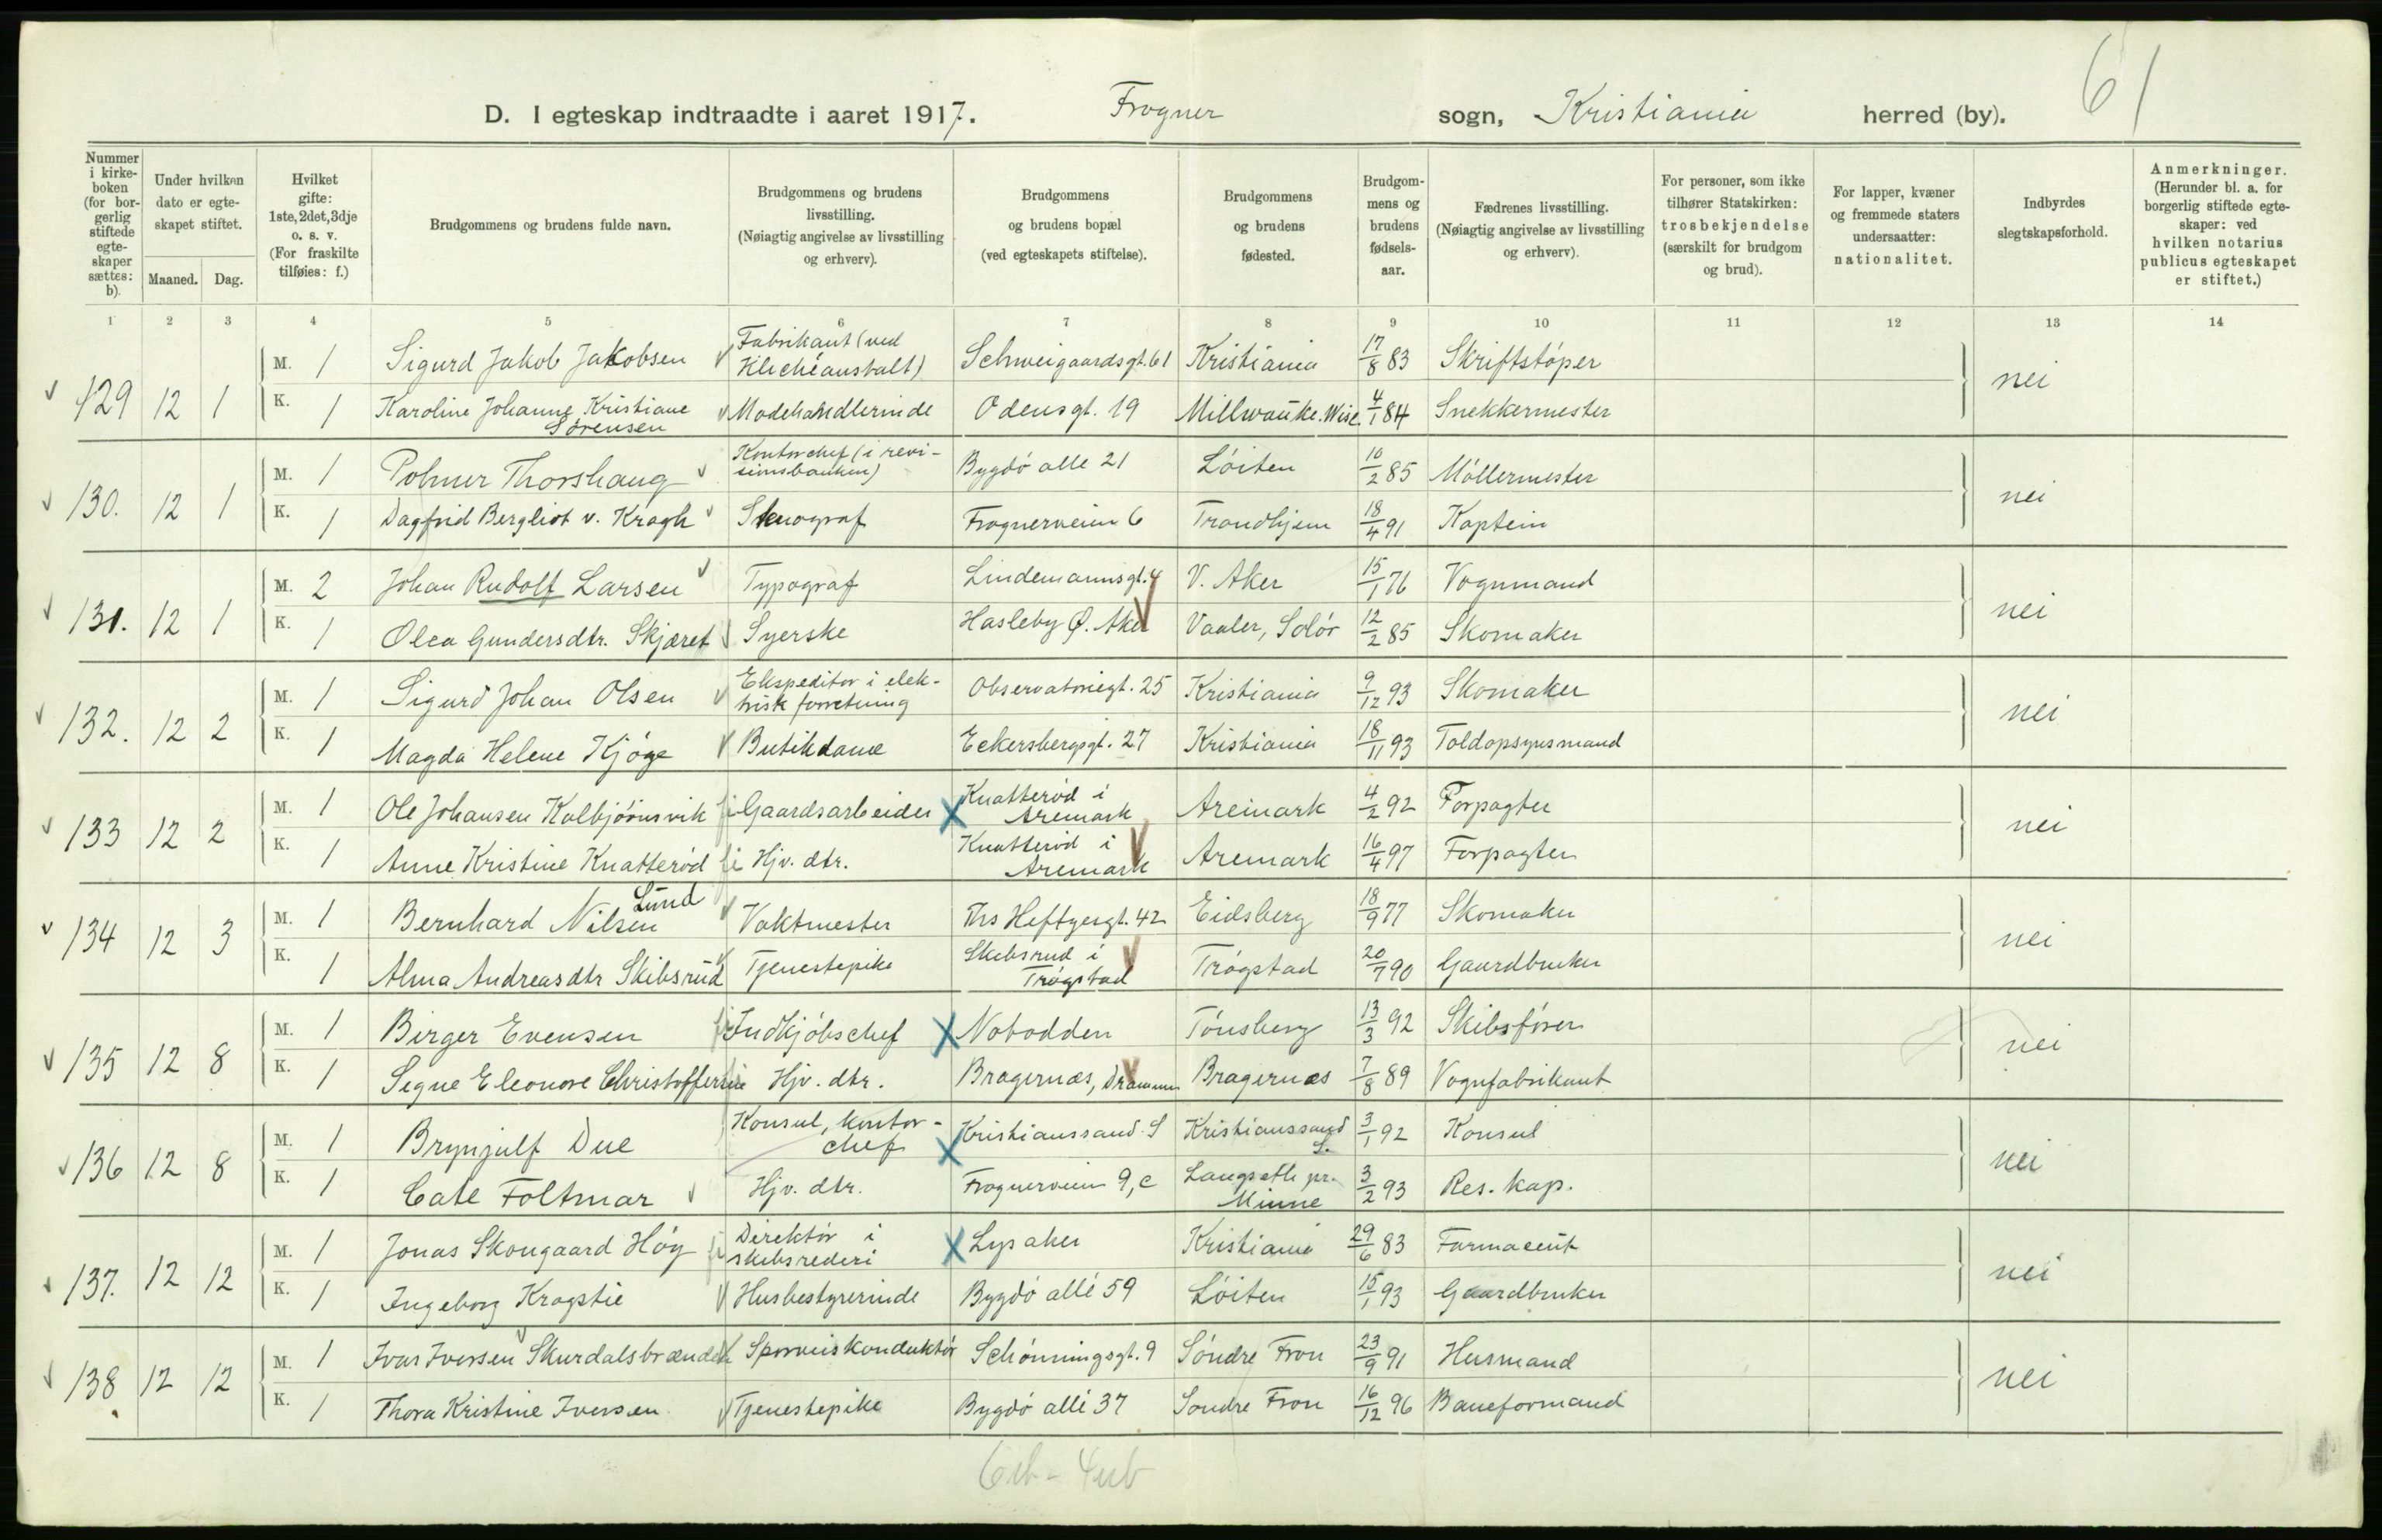 61
D. I egteskap indtraadte i aaret 1917. Frogner sogn, Kristiania herred (by).
Nummer i kirkeboken (for borgerlig stiftede egteskaper sættes: b).
Under hvilken dato er egteskapet stiftet.
Maaned. Dag.
Hvilket gifte: 1ste, 2det, 3dje o. s. v. (For fraskilte tilføies: f.)
Brudgommens og brudens fulde navn.
Brudgommens og brudens livsstilling. (Nøiagtig angivelse av livsstilling og erhverv).
Brudgommens og brudens bopæl (ved egteskapets stiftelse).
Brudgommens og brudens fødested.
Brudgommens og brudens fødselsaar.
Fædrenes livsstilling. (Nøiagtig angivelse av livsstilling og erhverv).
For personer, som ikke tilhører Statskirken: trosbekjendelse (særskilt for brudgom og brud).
For lapper, kvæner og fremmede staters undersaatter: nationalitet.
Indbyrdes slegtskapsforhold.
Anmerkninger. (Herunder bl. a. for borgerlig stiftede egteskaper: ved hvilken notarius publicus egteskapet er stiftet.)
1 2 3 4 5 6 7 8 9 10 11 12 13 14
129 12 1 M. 1 Sigurd Jakob Jakobsen Fabrikant (ved Klichéanstalt) Schweigaardsgt. 61 Kristiania 17/8 83 Skriftstøper nei
K. 1 Karoline Johanne Kristiane Sørensen Modehandlerinde Odensgt. 19 Millwauke. Wisc. 4/1 84 Snekkermester
130. 12 1 M. 1 Polmer Thorshaug Kontorchef (i revisionsbanken) Bygdö alle 21 Löiten 10/2 85 Möllermester nei
K. 1 Dagfrid Bergliot v. Krogh Stenograf Frognerveien 6 Trondhjem 18/4 91 Kaptein
131. 12 1 M. 2 Johan Rudolf Larsen Typograf Lindemannsgt. 4 V. Aker 15/1 76 Vognmand nei
K. 1 Olea Gundersdtr. Skjæret Syerske Hasleby Ø. Aker Vaaler, Solör 12/2 85 Skomaker
132. 12 2 M. 1 Sigurd Johan Olsen Ekspeditor i elektrisk forretning Observatoriegt. 25 Kristiania 9/12 93 Skomaker nei
K. 1 Magda Helene Kjöge Butikdame Eckersbergsgt. 27 Kristiania 18/11 93 Toldopsynsmand
133 12 2 M. 1 Ole Johansen Kolbjörnsvik Gaardsarbeider Knatteröd i Aremark Aremark 4/2 92 Forpagter nei
K. 1 Anne Kristine Knatteröd Hjv. dtr. Knatteröd i Aremark Aremark 16/4 97 Forpagter
134 12 3 M. 1 Bernhard Nilsen Lund Vaktmester Ths Heftyesgt. 42 Eidsberg 18/9 77 Skomaker nei
K. 1 Alma Andreasdtr Skibsrud Tjenestepike Skibsrud i Trögstad Trögstad 20/7 90 Gaardbruker
135 12 8 M. 1 Birger Evensen Indkjöbschef Notodden Tönsberg 13/3 92 Skibsförer nei
K. 1 Signe Eleonore Christoffersen Hjv. dtr. Bragernæs, Drammen Bragernæs 7/8 89 Vognfabrikant
136 12 8 M. 1 Brynjulf Due Konsul, kontorchef Kristianssand. S Kristianssand S. 3/1 92 Konsul nei
K. 1 Cate Foltmar Hjv. dtr. Frognerveien 9, c Langseth pr. Minne 3/2 93 Res. kap.
137. 12 12 M. 1 Jonas Skougaard Höy Direktör i skibsrederi Lysaker Kristiania 29/6 83 Farmaceut nei
K. 1 Ingeborg Kragstie Husbestyrerinde Bygdö allé 59 Löiten 15/1 93 Gaardbruker
138 12 12 M. 1 Ivar Iversen Skurdalsbrænden Sporveiskonduktör Schönningsgt. 9 Söndre Fron 23/9 91 Husmand nei
K. 1 Thora Kristine Iversen Tjenestepike Bygdö allé 37 Söndre Fron 16/12 96 Baneformand